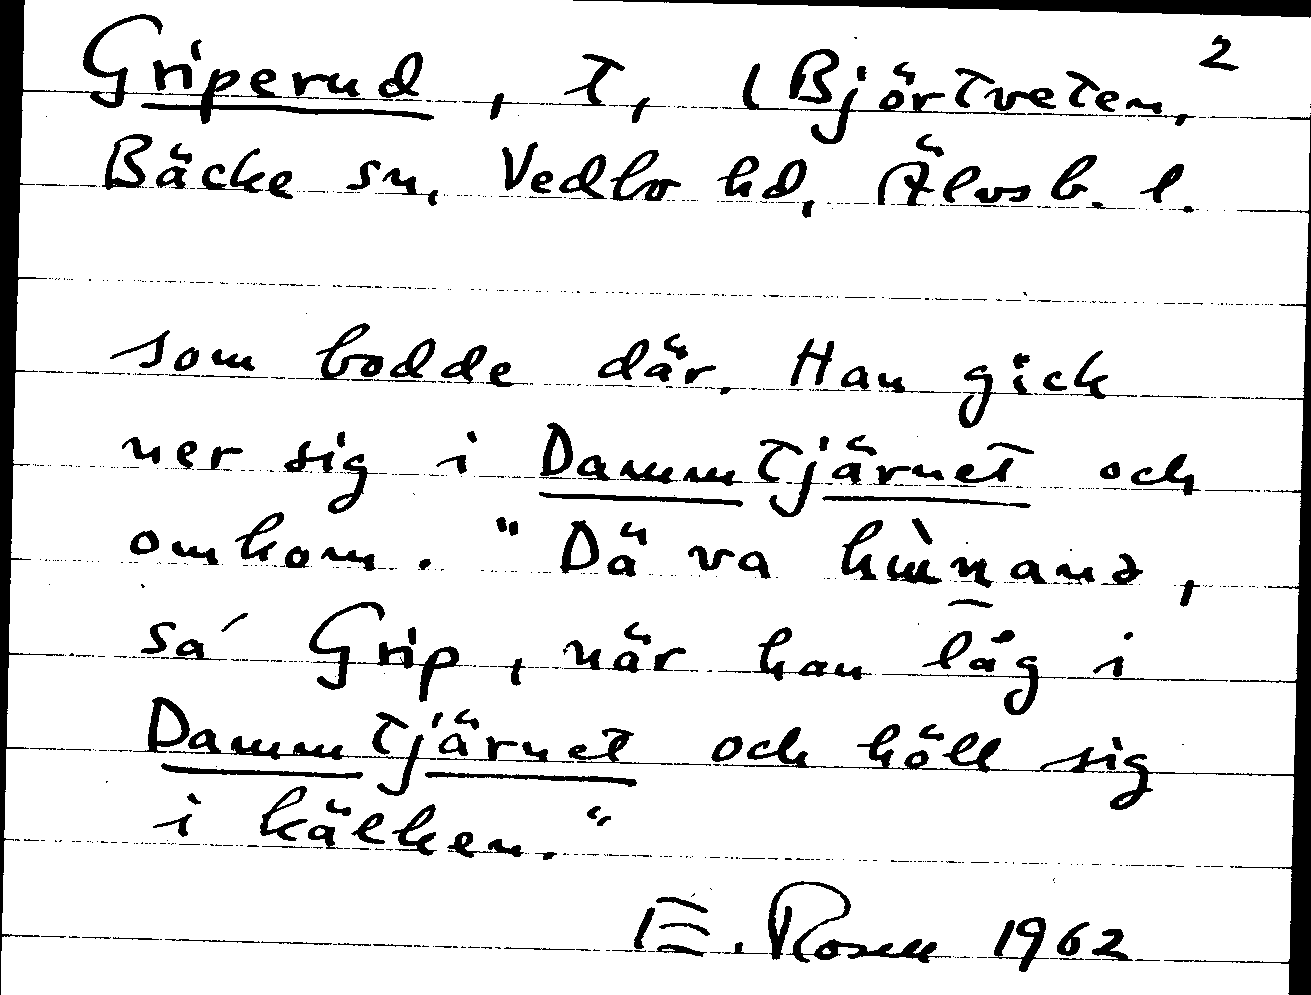 2
Griperud, t, (Björtveten,
Bäcke sn, Vedbo hd, Älvsb. l.
som bodde där. Han gick
ner sig i Dammtjärnet och
omkom. "Dä va
sa´ Grip, när han låg i
Dammtjärnet och höll sig
i kälken."
E. Rosen 1962